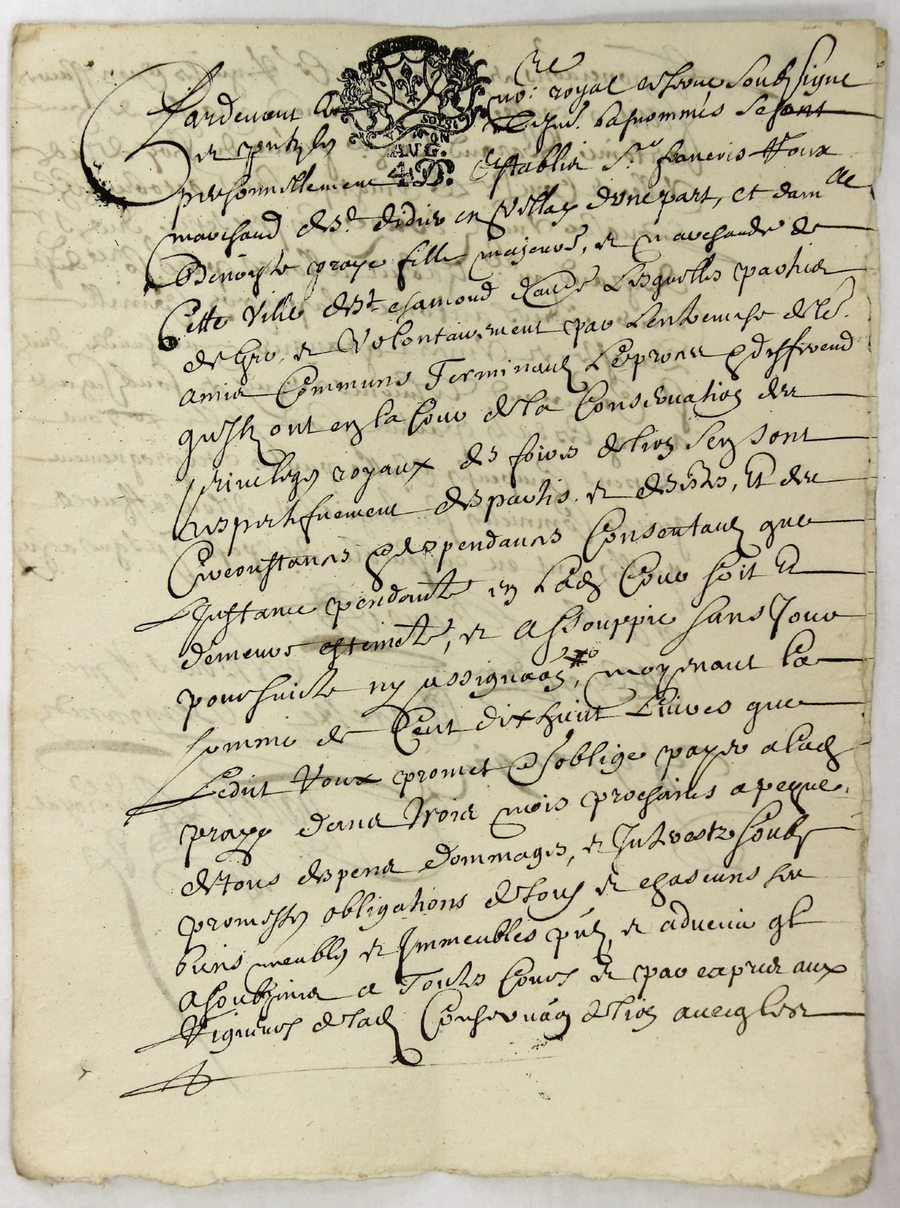 Pardevant le no.re royal et here. soubsigne
et psntz les tesm. bas nommés se sont
AUG.
4 D.
personnellement establis S.r francois Houx
marchand de S.t didier en Vellay d'une part, et dam.lle
Benoiste praye fille majeure, et marchande de
Cette Ville de S.t chamond d'autre Lesquelles parties
de gre et Volontairement par L'entremise de le.s
amis Communs Terminant Leproces et differend
quilz ont en la Cour de la Conservation des
privileges royaux des foires de lion se sont
respectifvement despartis et desistes, Et des
Circonstances et despendances Consentant que
L'instance pendante en lad. Cour soit Et
demeure esteincte, et assouppie sans Jour
poursuitte ny assignaon, moyenant La
somme de Cent dix huict Livres que
Ledit Houx promet et s'oblige payer a lad.
praye dans trois mois prochains a peyne
de tous despens dommages, et Interestz soubz
promesses obligations de tous et chascuns ses
biens meubles et Immeubles psnz, et advenir qt
a soubzmis a Toutes Cours et par expres aux
Vigueurs de lad. Conservaon de lion avec les